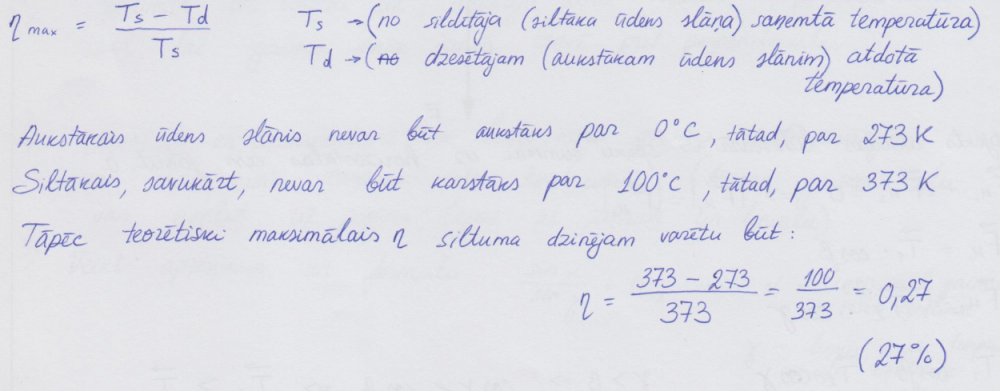 η max = (Ts – Td) / Ts    Ts → (no sildītāja (siltāka ūdens slāņa) saņemtā temperatūra)
Td → (no dzesētājam (aukstākam ūdens slānim) atdotā temperatūra)
Aukstākais ūdens slānis nevar būt aukstāks par 0°C, tātad, par 273 K
Siltākais, savukārt, nevar būt karstāks par 100°C, tātad, par 373 K
Tāpēc teorētiski maksimālais η siltuma dzinējam varētu būt:
η = (373 – 273) / 373 = 100 / 373 = 0,27
(27%)